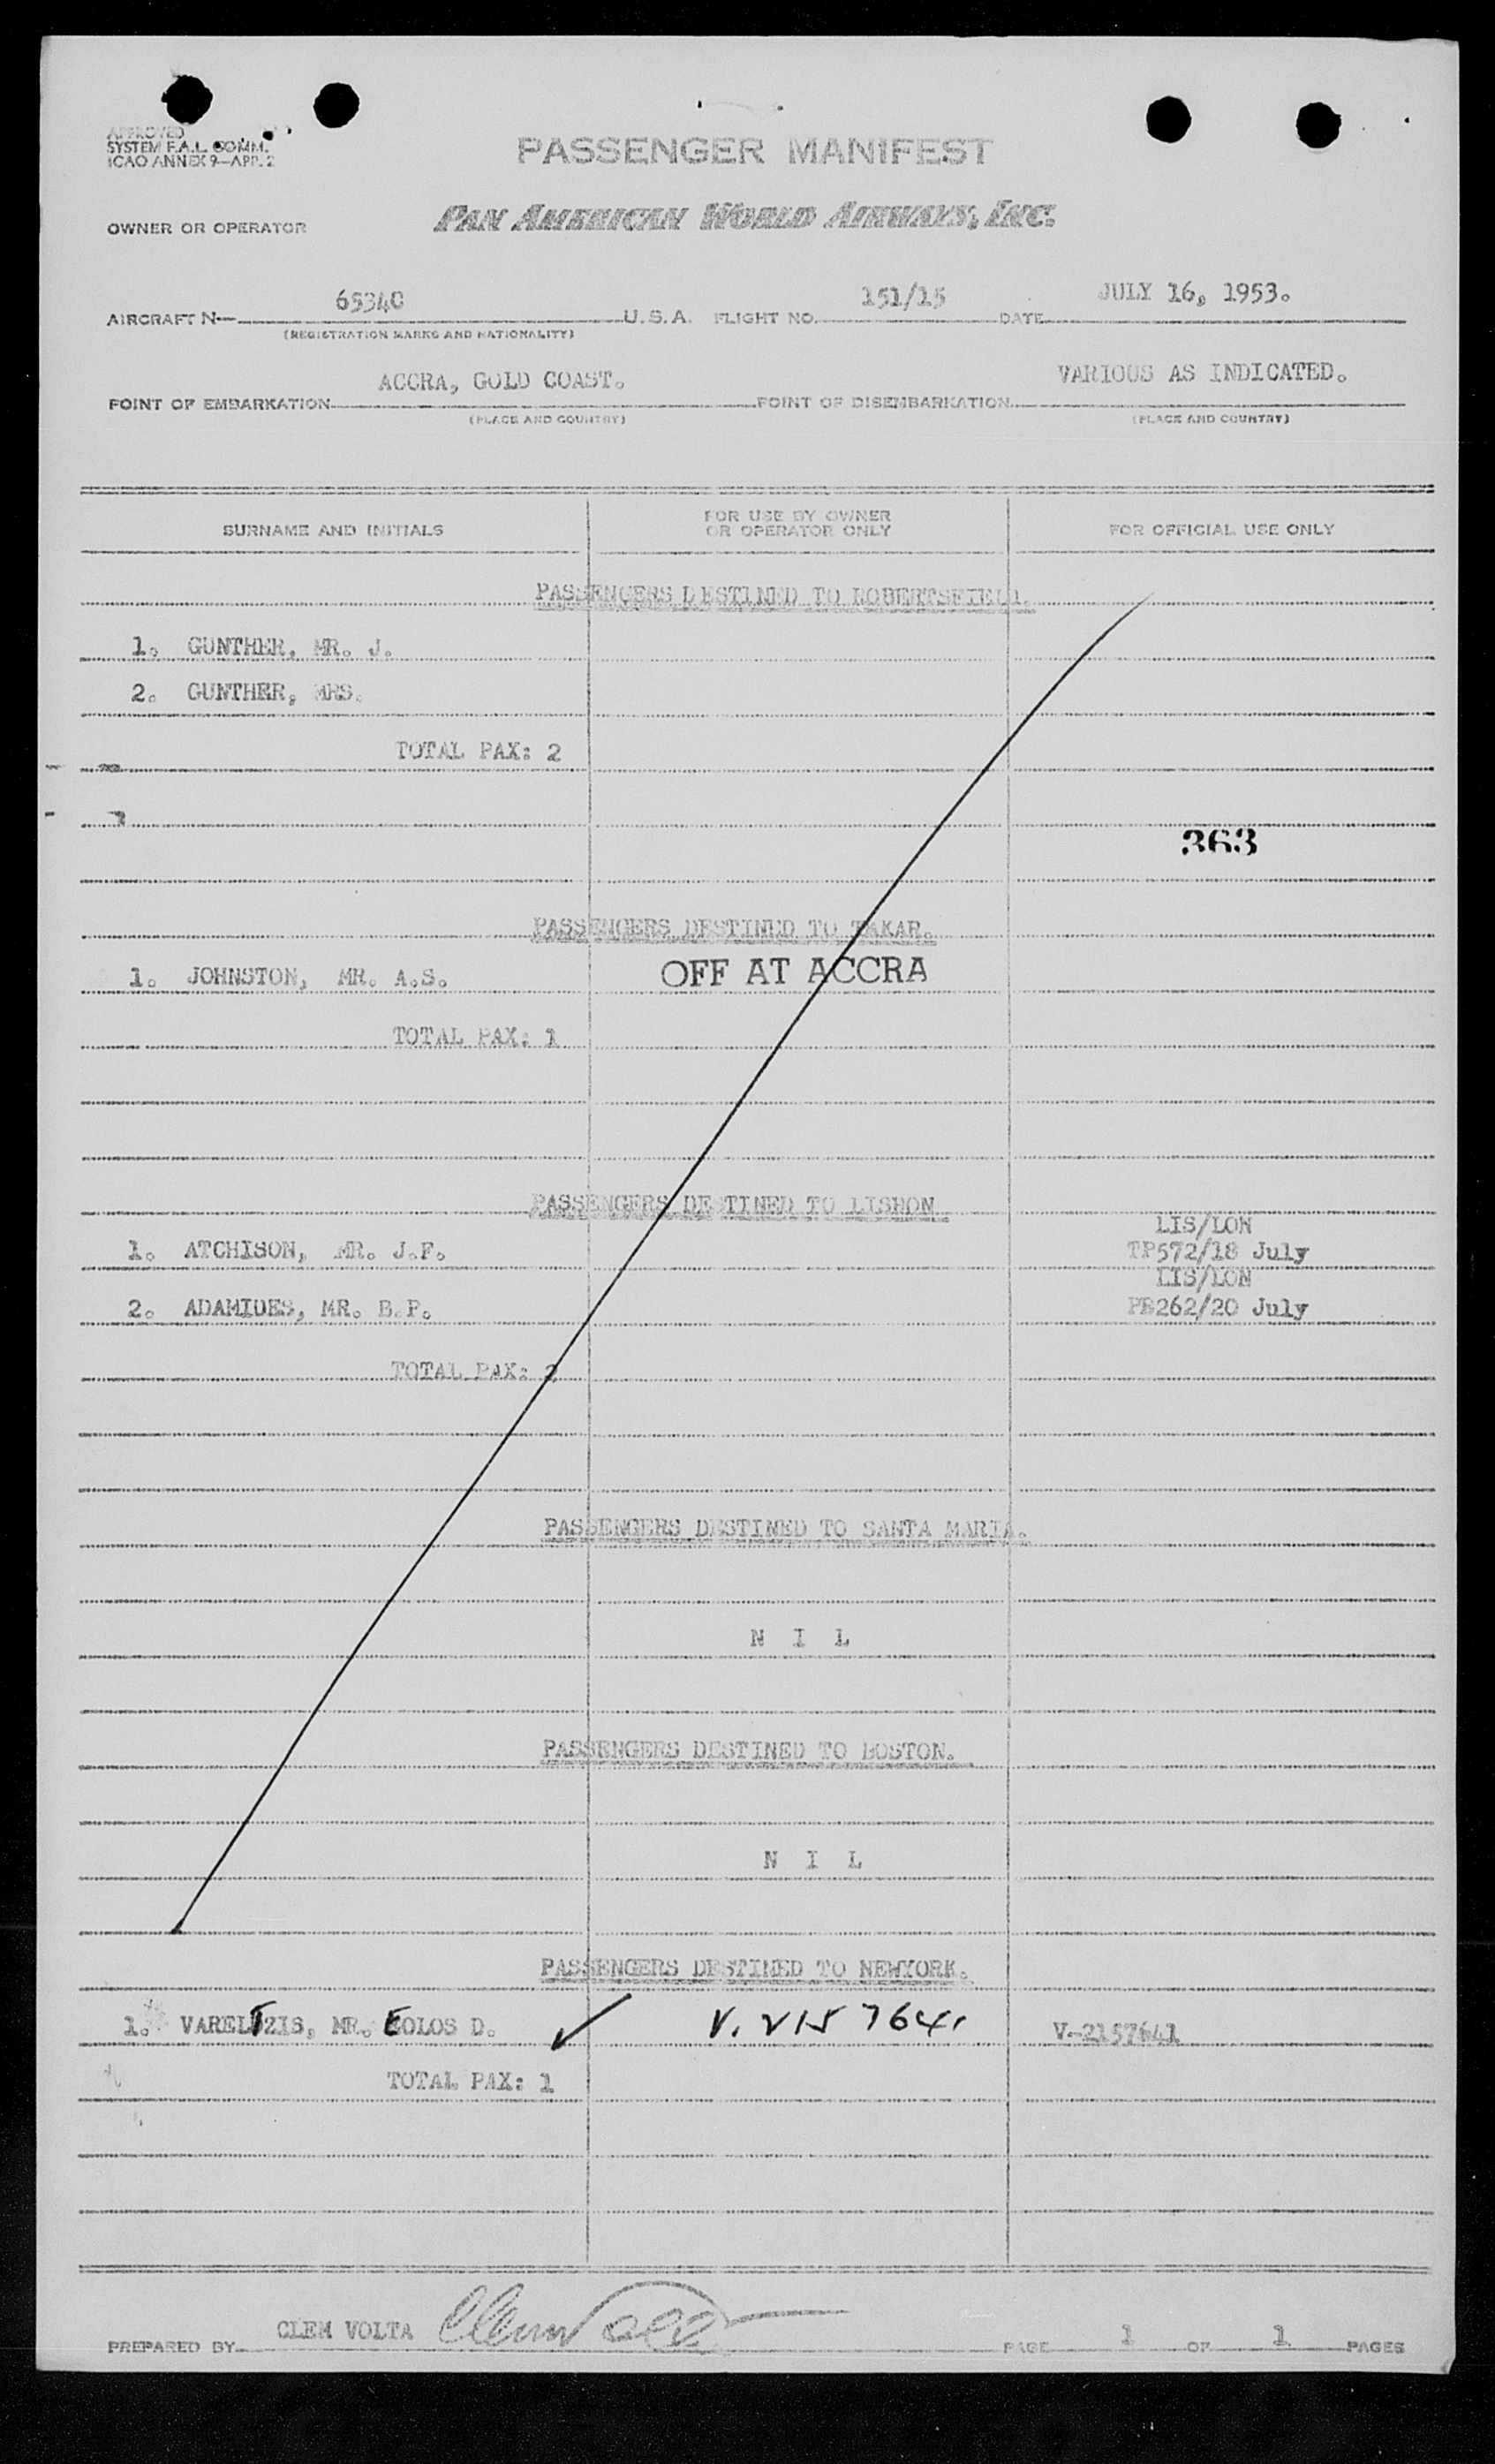 APPROVED
SYSTEM F.A.L. COMM.
ICAO ANNEX 9—APP. 2
PASSENGER MANIFEST
OWNER OR OPERATOR PAN AMERICAN WORLD AIRWAYS, INC.
AIRCRAFT N— 65340 U. S. A. FLIGHT NO. 151/15 DATE JULY 16, 1953.
(REGISTRATION MARKS AND NATIONALITY)
POINT OF EMBARKATION ACCRA, GOLD COAST. POINT OF DISEMBARKATION VARIOUS AS INDICATED.
(PLACE AND COUNTRY) (PLACE AND COUNTRY)
SURNAME AND INITIALS FOR USE BY OWNER OR OPERATOR ONLY FOR OFFICIAL USE ONLY
PASSENGERS DESTINED TO ROBERTSFIELD.
1. GUNTHER, MR. J.
2. GUNTHER, MRS.
TOTAL PAX: 2
363
PASSENGERS DESTINED TO TAKAR.
1. JOHNSTON, MR. A.S. OFF AT ACCRA
TOTAL PAX: 1
PASSENGERS DESTINED TO LISBON
LIS/LON
1. ATCHISON, MR. J.F. TP572/18 July
LIS/LON
2. ADAMIDES, MR. B.P. PB262/20 July
TOTAL PAX: 2
PASSENGERS DESTINED TO SANTA MARIA.
N I L
PASSENGERS DESTINED TO BOSTON.
N I L
PASSENGERS DESTINED TO NEWYORK.
1. VARELTZIS, MR. EOLOS D. ✓ V. 2157641 V-2157641
TOTAL PAX: 1
PREPARED BY CLEM VOLTA Clem Volta PAGE 1 OF 1 PAGES